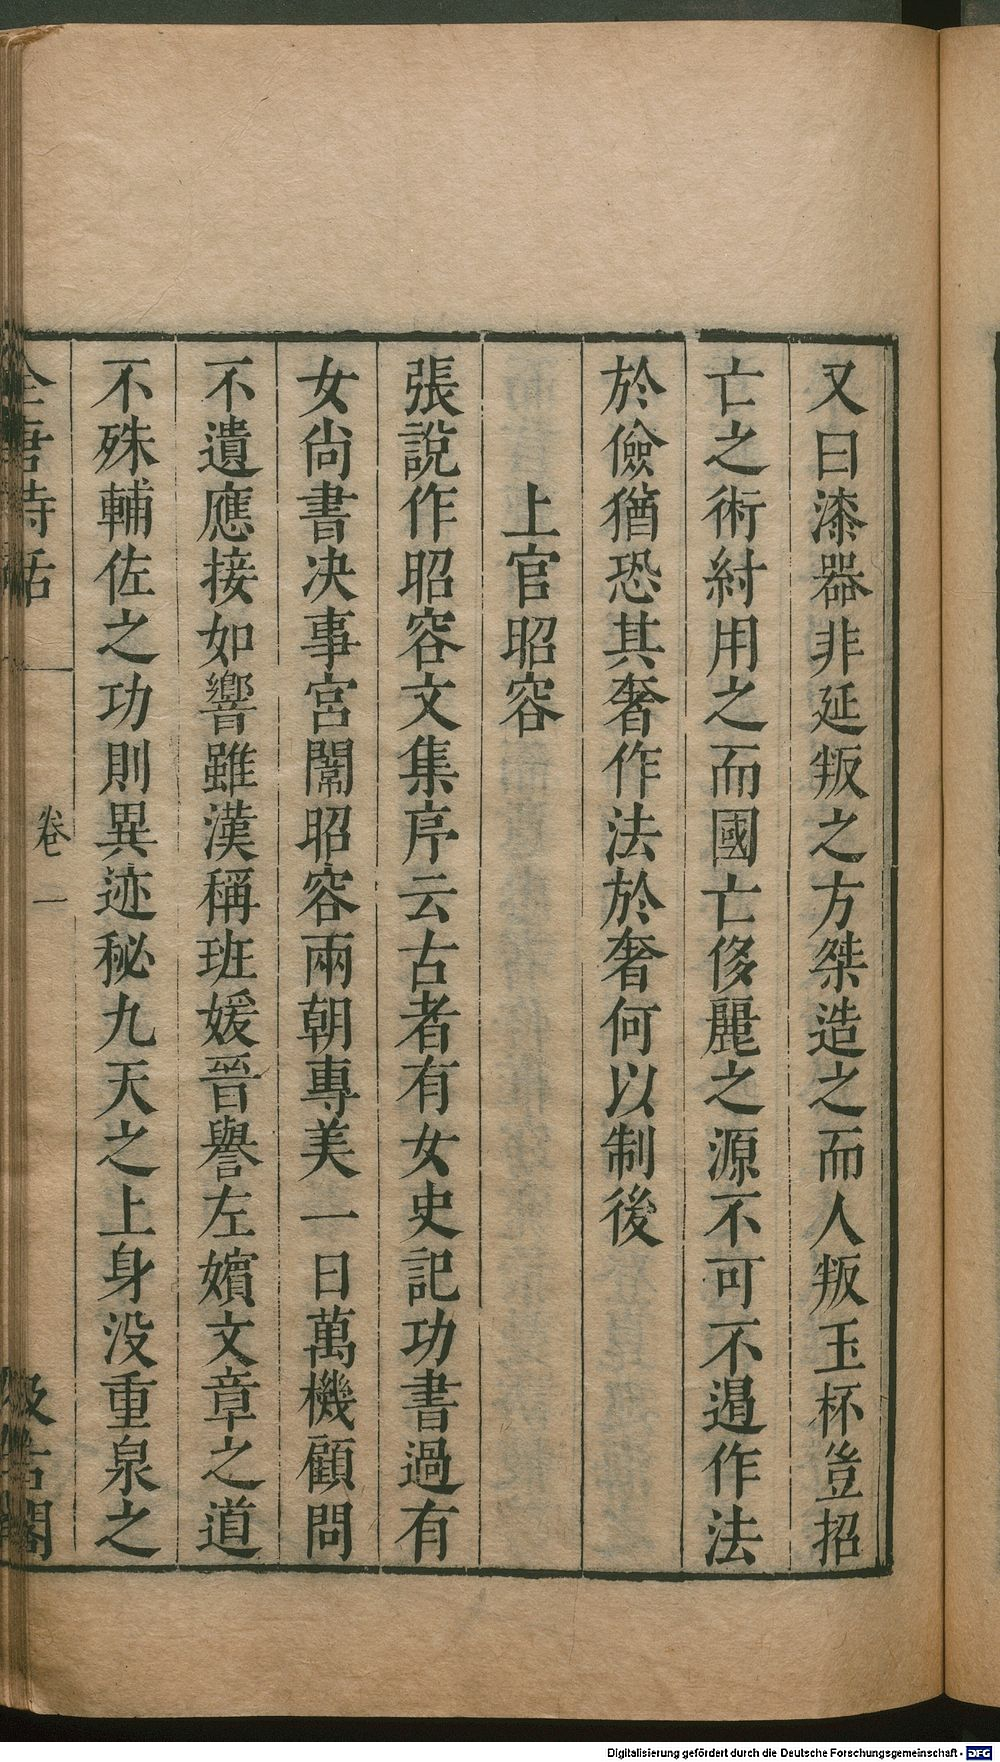 又曰漆器非延叛之方桀造之而人叛玉杯豈招
亡之術紂用之而國亡侈麗之源不可不遏作法
於儉猶恐其奢作法於奢何以制後
上官昭容
張說作昭容文集序云古者有女史記功書過有
女尙書决事宮閤昭容兩朝專美一日萬機顧問
不遺應接如響雖漢稱班媛晉譽左嬪文章之道
不殊輔佐之功則異迹秘九天之上身没重泉之
全唐詩話
卷一
汲古閣
Digitalisierung gefördert durch die Deutsche Forschungsgemeinschaft - DFG